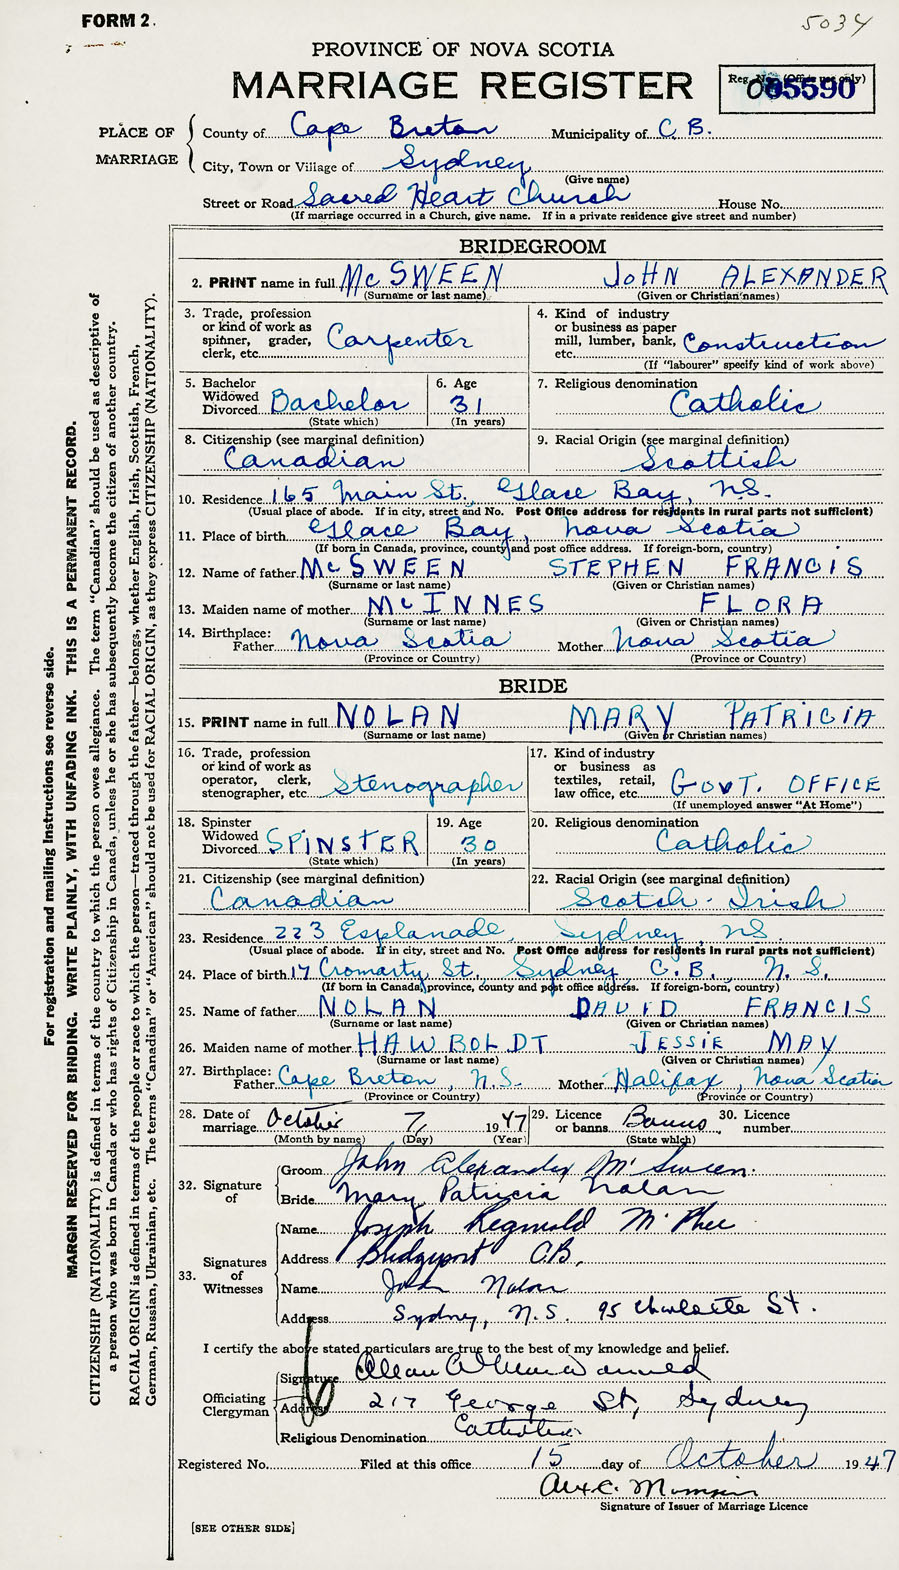 FORM 2.
5034
PROVINCE OF NOVA SCOTIA
MARRIAGE REGISTER
Reg. No. (Office use only)
005590
PLACE OF MARRIAGE
County of Cape Breton Municipality of C.B.
City, Town or Village of Sydney
(Give name)
Street or Road Sacred Heart Church House No.
(If marriage occurred in a Church, give name. If in a private residence give street and number)
BRIDEGROOM
2. PRINT name in full McSWEEN JOHN ALEXANDER
(Surname or last name) (Given or Christian names)
3. Trade, profession or kind of work as spinner, grader, clerk, etc. Carpenter
4. Kind of industry or business as paper mill, lumber, bank, etc. Construction
(If "labourer" specify kind of work above)
5. Bachelor Widowed Divorced Bachelor
(State which)
6. Age 31
(In years)
7. Religious denomination
Catholic
8. Citizenship (see marginal definition)
Canadian
9. Racial Origin (see marginal definition)
Scottish
10. Residence 165 Main St. Glace Bay, N.S.
(Usual place of abode. If in city, street and No. Post Office address for residents in rural parts not sufficient)
11. Place of birth Glace Bay, Nova Scotia
(If born in Canada, province, county and post office address. If foreign-born, country)
12. Name of father McSWEEN STEPHEN FRANCIS
(Surname or last name) (Given or Christian names)
13. Maiden name of mother McINNES FLORA
(Surname or last name) (Given or Christian names)
14. Birthplace:
Father Nova Scotia Mother Nova Scotia
(Province or Country) (Province or Country)
BRIDE
15. PRINT name in full NOLAN MARY PATRICIA
(Surname or last name) (Given or Christian names)
16. Trade, profession or kind of work as operator, clerk, stenographer, etc. Stenographer
17. Kind of industry or business as textiles, retail, law office, etc. GOVT. OFFICE
(If unemployed answer "At Home")
18. Spinster Widowed Divorced SPINSTER
(State which)
19. Age 30
(In years)
20. Religious denomination
Catholic
21. Citizenship (see marginal definition)
Canadian
22. Racial Origin (see marginal definition)
Scotch-Irish
23. Residence 223 Esplanade, Sydney, N.S.
(Usual place of abode. If in city, street and No. Post Office address for residents in rural parts not sufficient)
24. Place of birth 17 Cromarty St. Sydney C.B. N.S.
(If born in Canada, province, county and post office address. If foreign-born, country)
25. Name of father NOLAN DAVID FRANCIS
(Surname or last name) (Given or Christian names)
26. Maiden name of mother HAWBOLDT JESSIE MAY
(Surname or last name) (Given or Christian names)
27. Birthplace:
Father Cape Breton, N.S. Mother Halifax, Nova Scotia
(Province or Country) (Province or Country)
28. Date of marriage October 7, 1947
(Month by name) (Day) (Year)
29. Licence or banns Banns
(State which)
30. Licence number
32. Signature of
Groom John Alexander McSween.
Bride Mary Patricia Nolan
33. Signatures of Witnesses
Name Joseph Reginald McPhee
Address Bridgeport C.B.
Name John Nolan
Address Sydney, N.S. 95 Charlotte St.
I certify the above stated particulars are true to the best of my knowledge and belief.
Officiating Clergyman
Signature
Address 217 George St, Sydney
Religious Denomination Catholic
Registered No. Filed at this office 15 day of October 1947
Signature of Issuer of Marriage Licence
[SEE OTHER SIDE]
For registration and mailing instructions see reverse side.
MARGIN RESERVED FOR BINDING. WRITE PLAINLY, WITH UNFADING INK. THIS IS A PERMANENT RECORD.
CITIZENSHIP (NATIONALITY) is defined in terms of the country to which the person owes allegiance. The term "Canadian" should be used as descriptive of
a person who was born in Canada or who has rights of Citizenship in Canada, unless he or she has subsequently become the citizen of another country.
RACIAL ORIGIN is defined in terms of the people or race to which the person—traced through the father—belongs, whether English, Irish, Scottish, French,
German, Russian, Ukrainian, etc. The terms "Canadian" or "American" should not be used for RACIAL ORIGIN, as they express CITIZENSHIP (NATIONALITY).